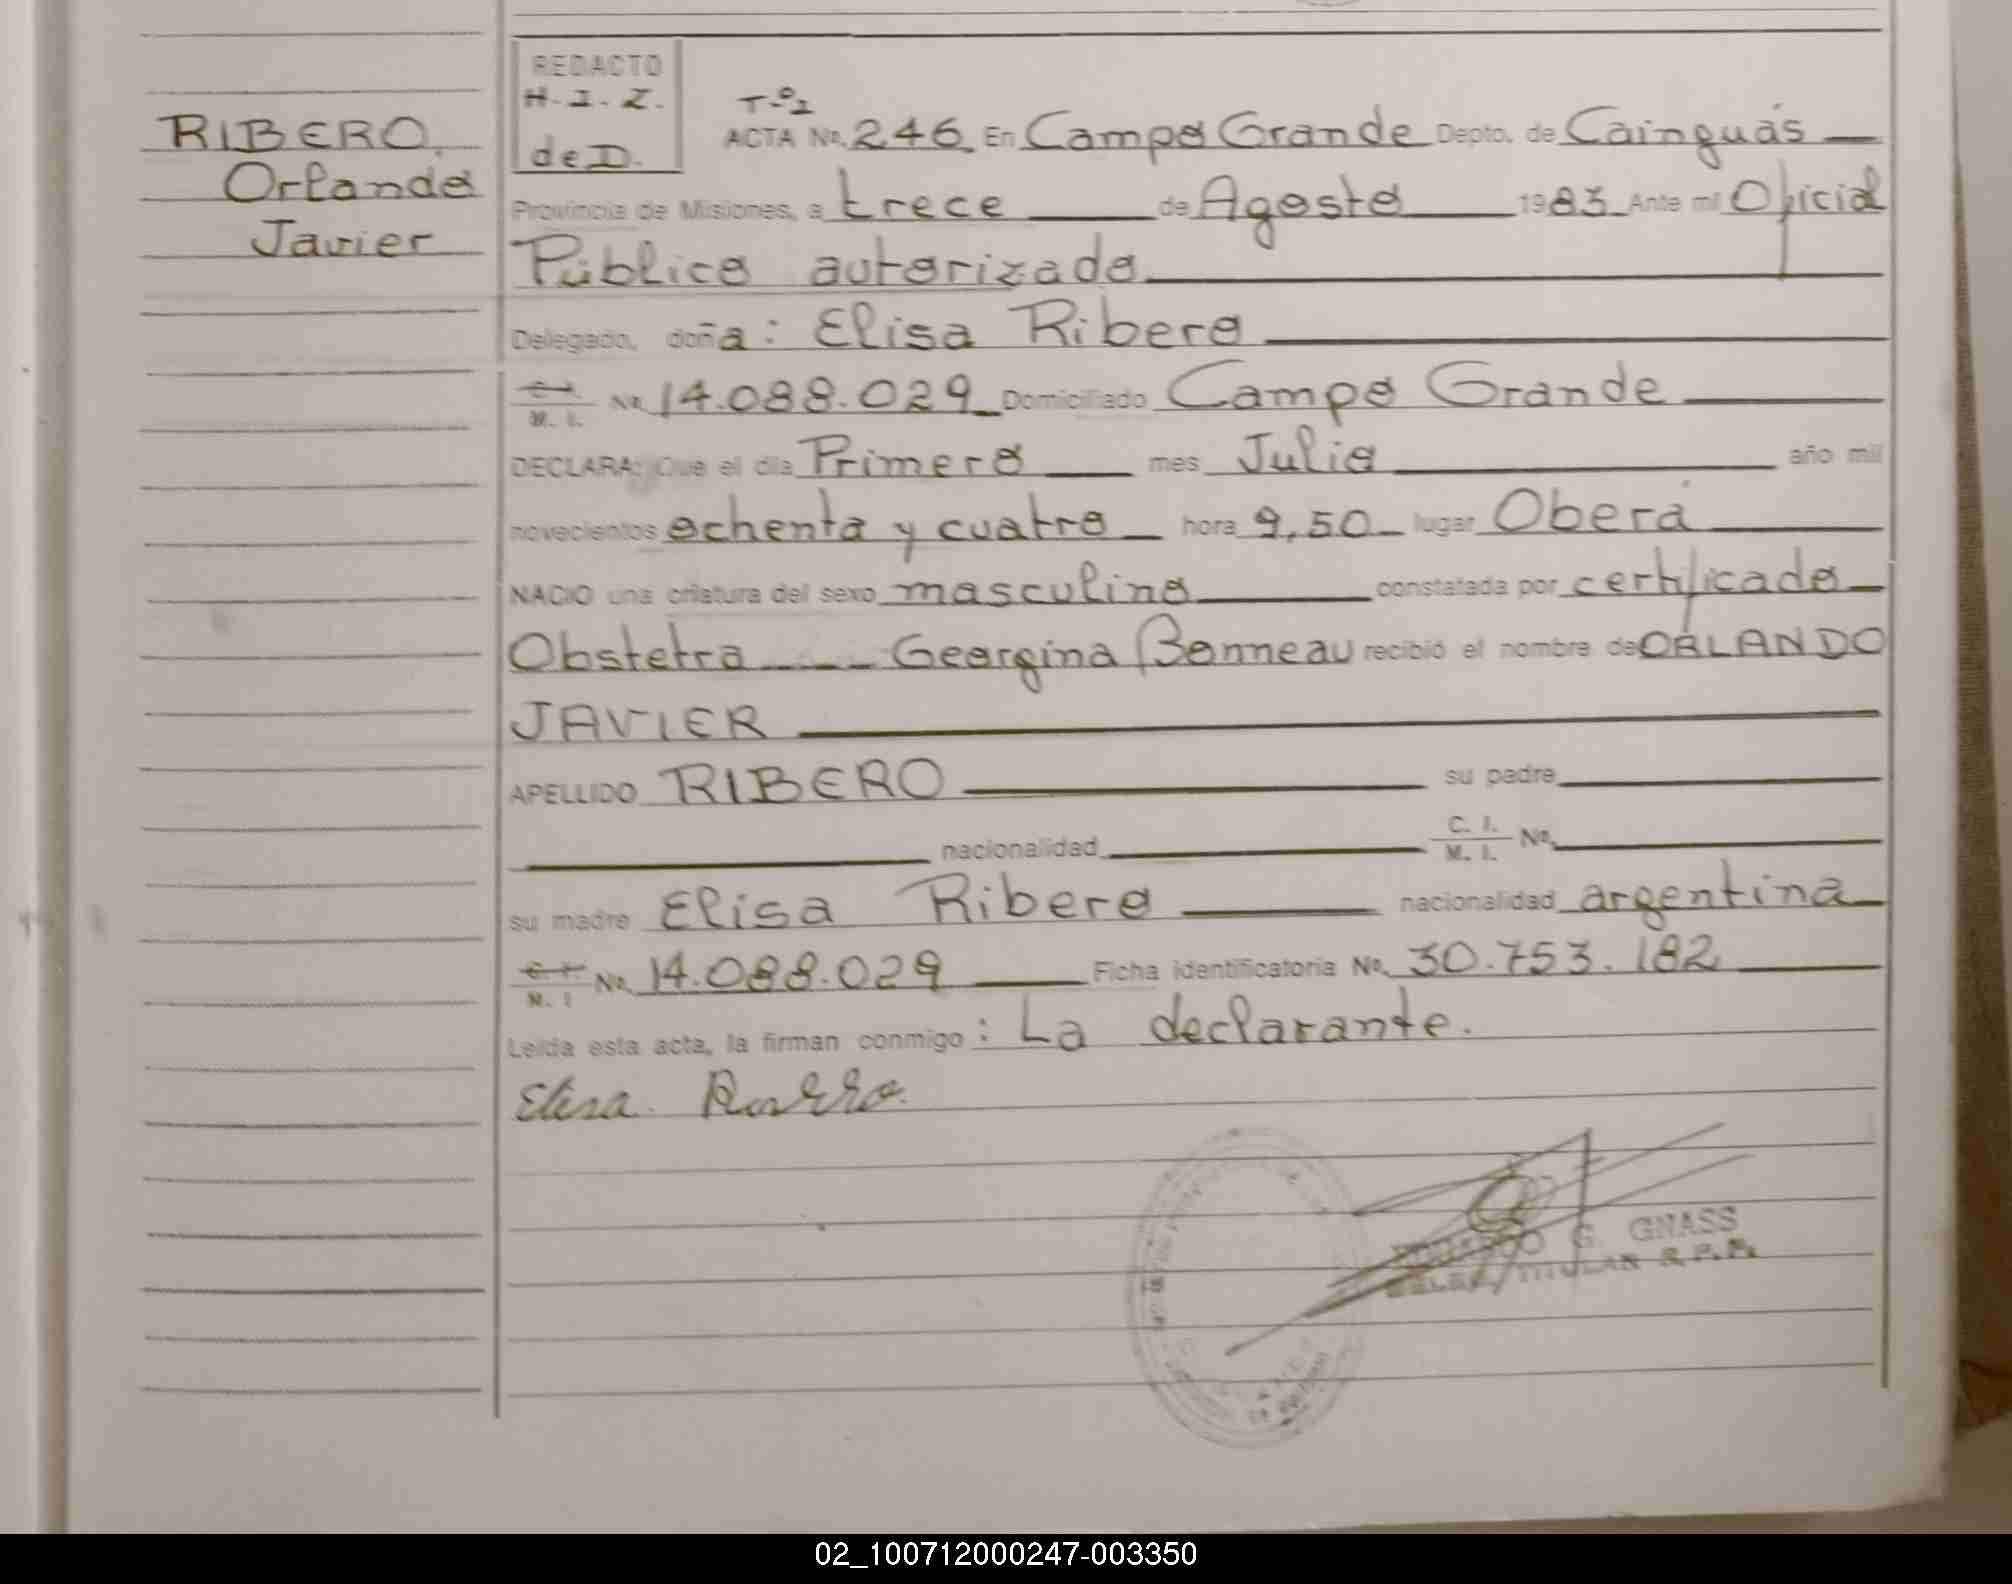 RIBERO,
Orlando
Javier
REDACTO
H.I.Z.
de D.
Tº1
ACTA No. 246 En Campo Grande Depto. de Cainguás
Provincia de Misiones, a trece de Agosto 1985 Ante mí Oficial
Público autorizado
Delegado, doña: Elisa Ribero
C.I. M. I. No. 14.088.029 Domiciliado Campo Grande
DECLARA: Que el día Primero mes Julio año mil
novecientos ochenta y cuatro hora 9,50 lugar Oberá
NACIO una criatura del sexo masculino constatada por certificado
Obstetra Georgina Bonneau recibió el nombre de ORLANDO
JAVIER
APELLIDO RIBERO su padre
nacionalidad C. I. M. I. No.
su madre Elisa Ribero nacionalidad argentina
C.I. M. I No. 14.088.029 Ficha identificatoria No. 30.753.182
Leída esta acta, la firman conmigo: La declarante.
Elisa Ribero.
G. GNASS
TITULAR R.P.P.
02_100712000247-003350